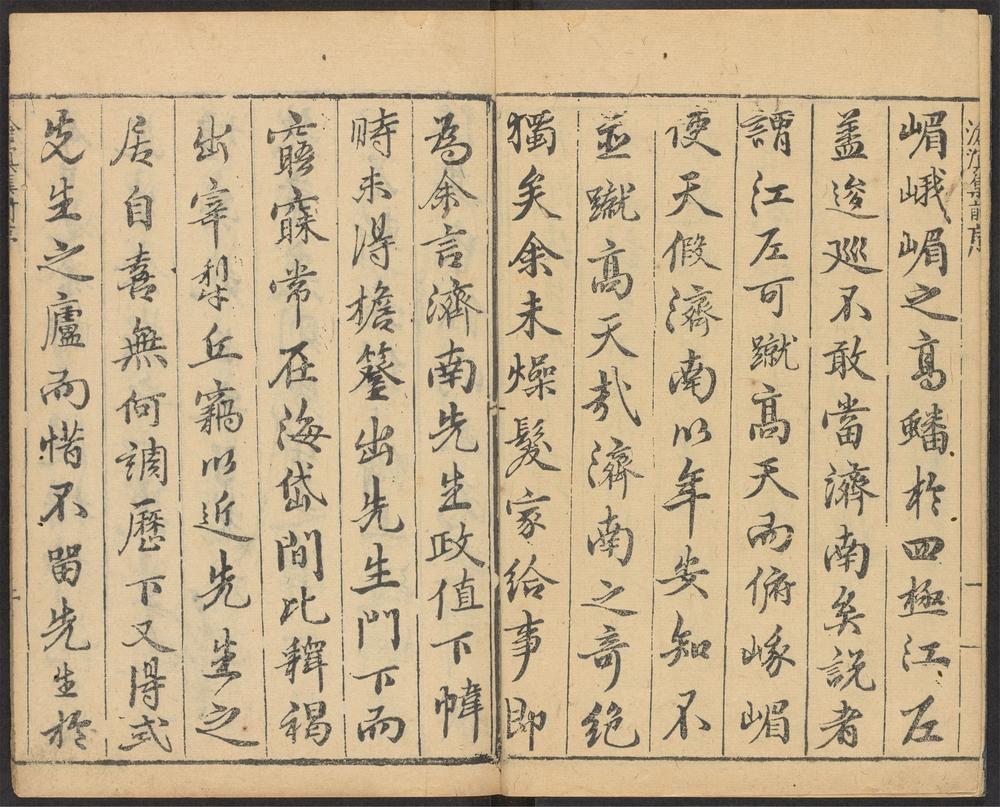 滄溟集前序
嵋峨嵋之高蟠於四極江左
蓋逡巡不敢當濟南矣説者
謂江左可蹴高天而俯峨嵋
使天假濟南以年安知不
並蹴高天哉濟南之奇絶
獨矣余未燥髮家給事即
為余言濟南先生政值下幃
時未得擔簦出先生門下而
寤寐常在海岱間比釋褐
出宰犁丘竊以近先生之
居自喜無何調歷下又得式
先生之廬而惜不留先生於